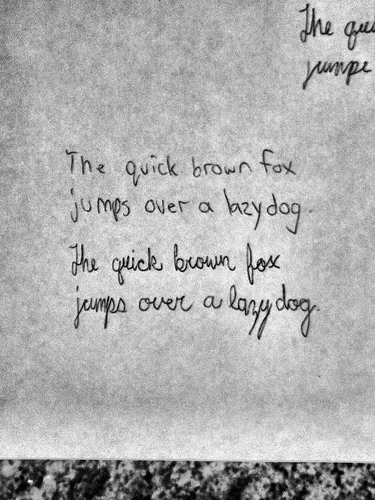 The
jumps
The quick brown fox
jumps over a lazy dog.
The quick brown fox
jumps over a lazy dog.